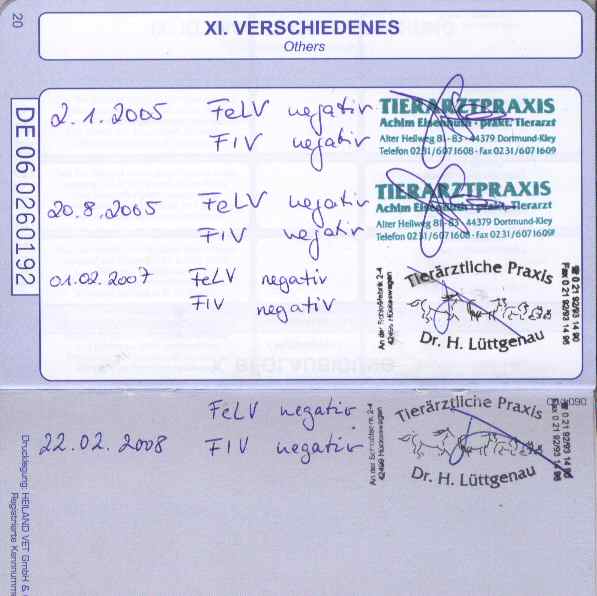 20
XI. VERSCHIEDENES
Others
DE 06 0260192
2.1.2005 FeLV negativ
FIV negativ
TIERARZTPRAXIS
Achim Eisenhuth · prakt. Tierarzt
Alter Hellweg 81 - 83 · 44379 Dortmund-Kley
Telefon 0231/6071608 · Fax 0231/6071609
20.8.2005 FeLV negativ
FIV negativ
TIERARZTPRAXIS
Achim Eisenhuth · prakt. Tierarzt
Alter Hellweg 81 - 83 · 44379 Dortmund-Kley
Telefon 0231/6071608 · Fax 0231/6071609
01.02.2007 FeLV negativ
FIV negativ
Tierärztliche Praxis
Dr. H. Lüttgenau
An der 2-4
42499 Hückeswagen
☎ 0 21 92/93 14 95
Fax 0 21 92/93 14 96
FeLV negativ
22.02.2008 FIV negativ
Tierärztliche Praxis
Dr. H. Lüttgenau
An der 2-4
42499 Hückeswagen
☎ 0 21 92/93 14 95
Fax 0 21 92/93 14 96
Drucklegung: HEILAND VET GmbH &
Registrierte Kennnumme